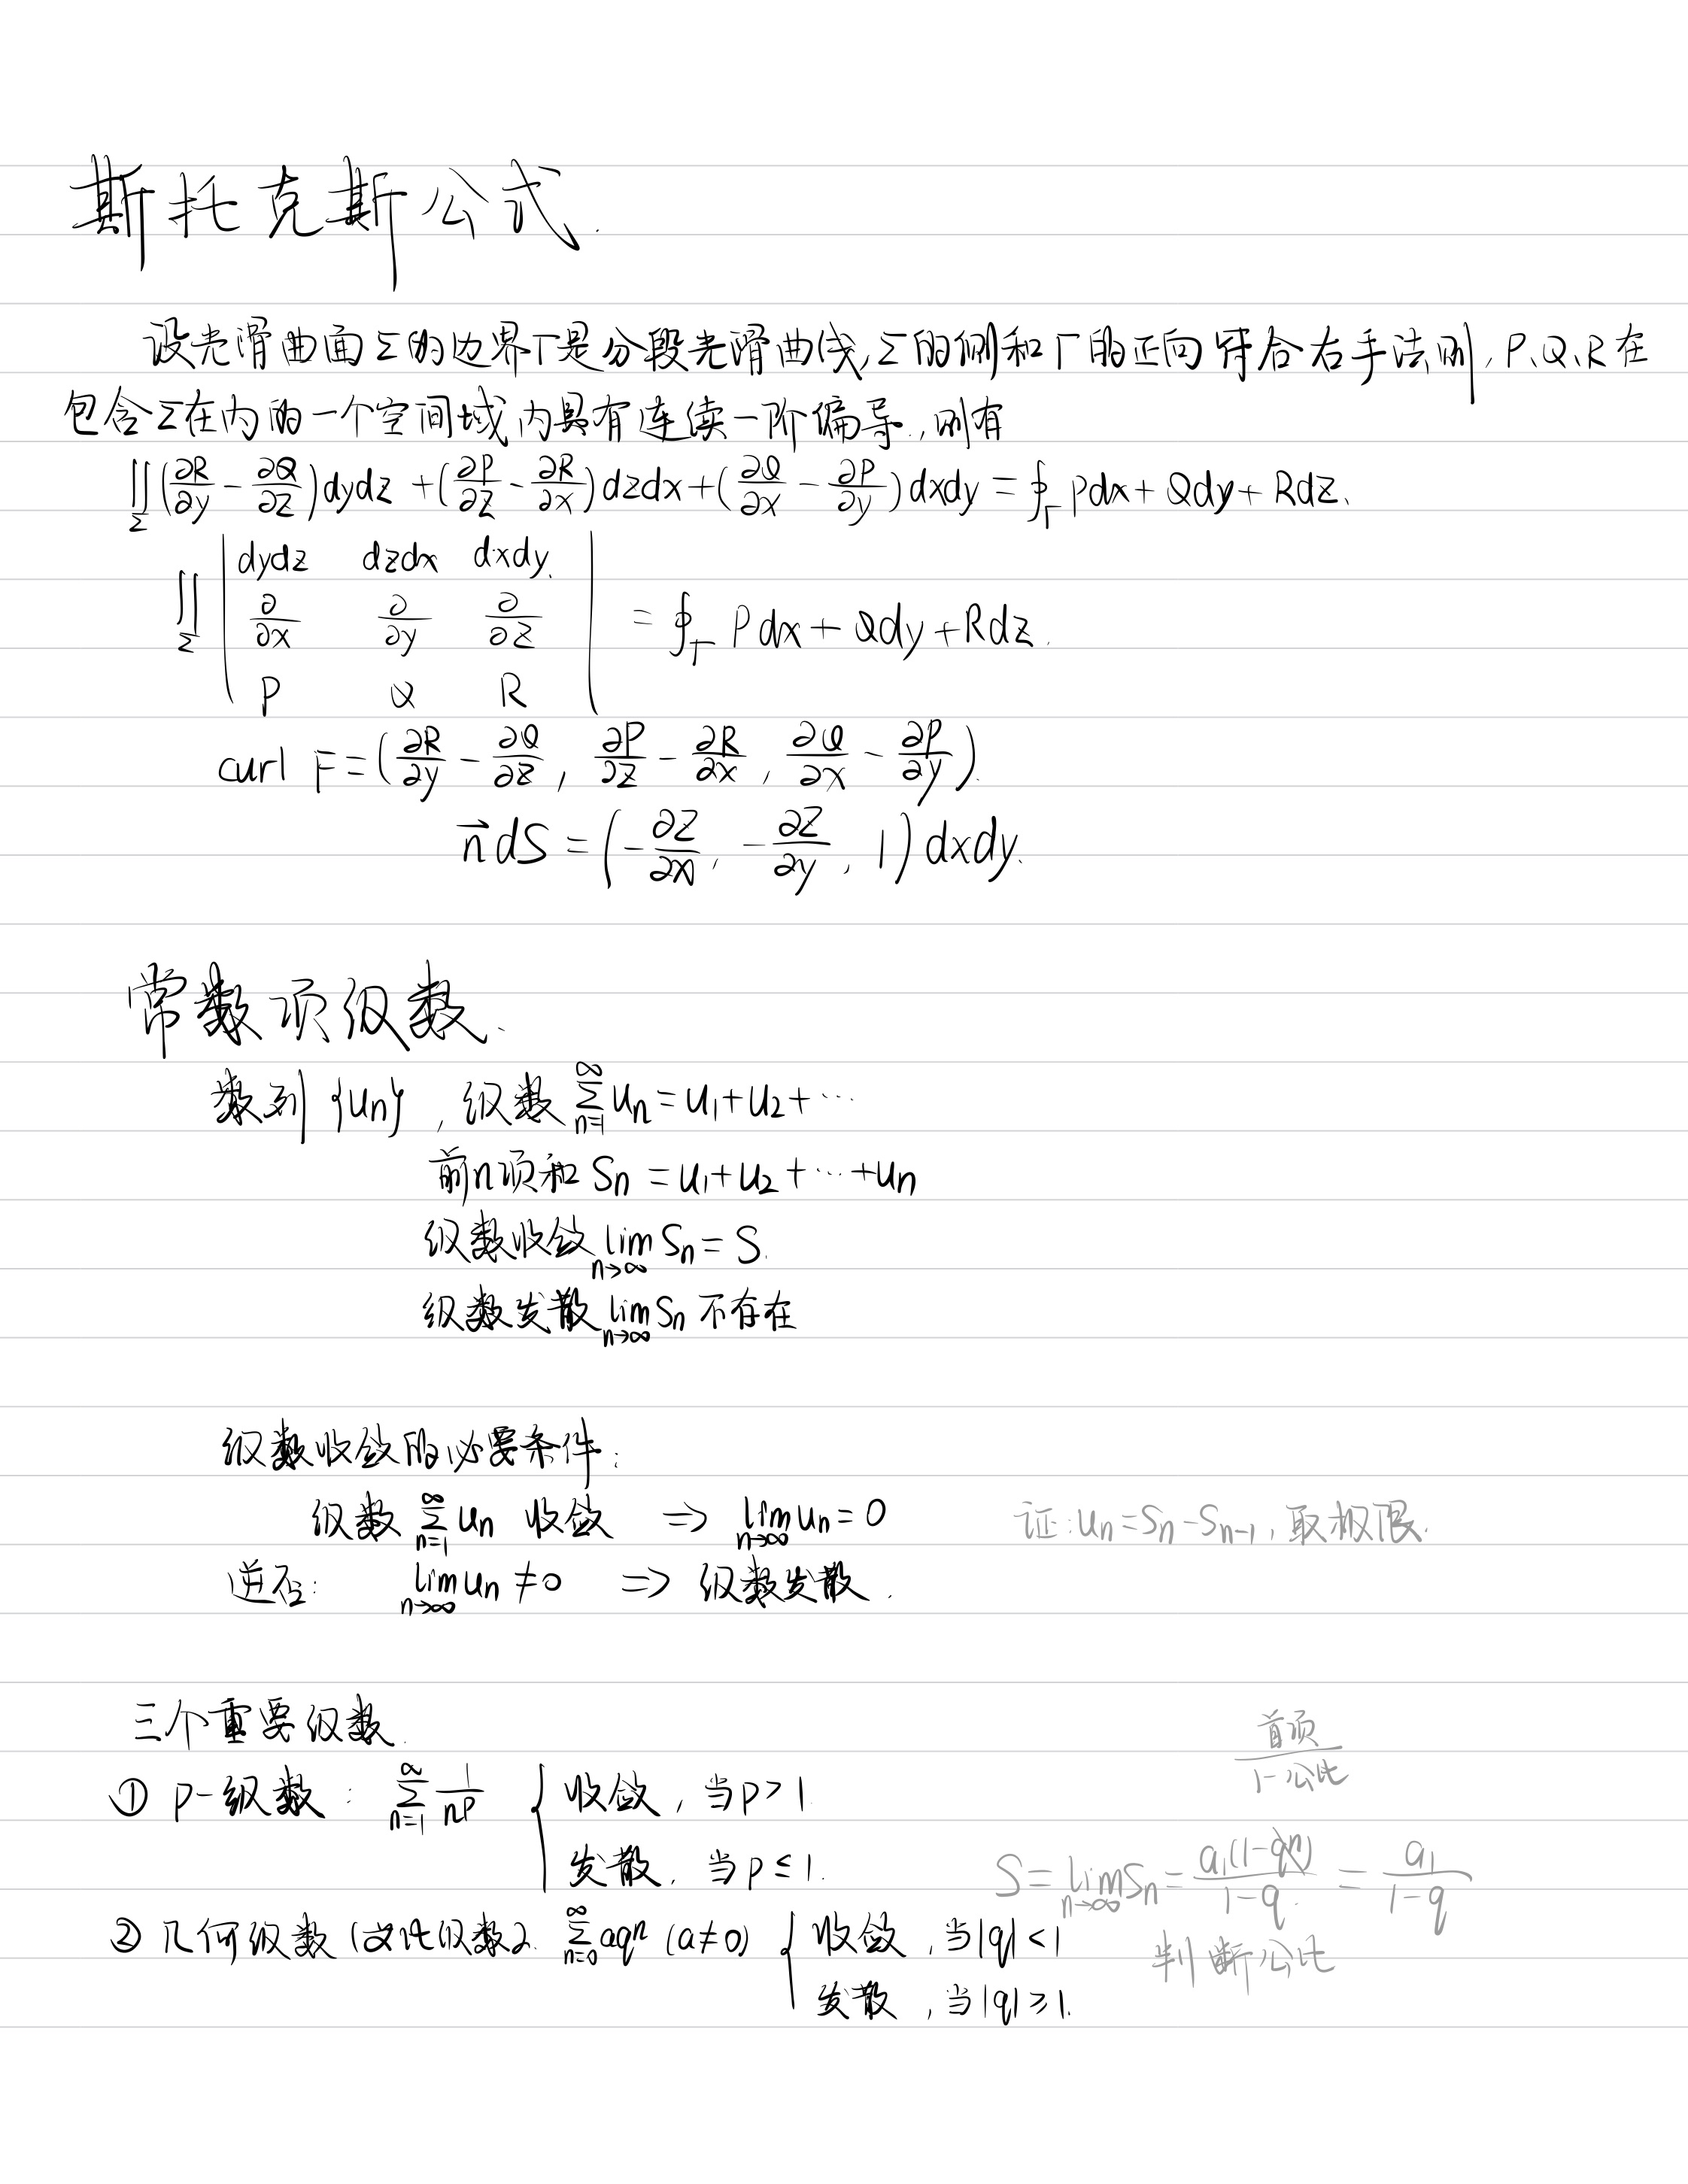 斯托克斯公式.
设光滑曲面Σ的边界Γ是分段光滑曲线,Σ的侧和Γ的正向符合右手法则,P、Q、R在
包含Σ在内的一个空间域内具有连续一阶偏导.,则有
∬_Σ (∂R/∂y - ∂Q/∂z)dydz + (∂P/∂z - ∂R/∂x)dzdx + (∂Q/∂x - ∂P/∂y)dxdy = ∮_Γ Pdx + Qdy + Rdz.
∬_Σ | dydz dzdx dxdy. |
| ∂/∂x ∂/∂y ∂/∂z | = ∮_Γ Pdx + Qdy + Rdz.
| P Q R |
curl F = (∂R/∂y - ∂Q/∂z, ∂P/∂z - ∂R/∂x, ∂Q/∂x - ∂P/∂y).
n⃗dS = (-∂z/∂x, -∂z/∂y, 1)dxdy.
常数项级数.
数列{uₙ}, 级数 ∑_{n=1}^∞ uₙ = u₁+u₂+⋯
前n项和 Sₙ = u₁+u₂+⋯+uₙ
级数收敛 lim_{n→∞} Sₙ = S.
级数发散 lim_{n→∞} Sₙ 不存在
级数收敛的必要条件:
级数 ∑_{n=1}^∞ uₙ 收敛 ⇒ lim_{n→∞} uₙ = 0 证:uₙ=Sₙ-Sₙ₋₁,取极限.
逆否: lim_{n→∞} uₙ ≠ 0 ⇒ 级数发散.
三个重要级数.
首项/(1-公比)
① p-级数: ∑_{n=1}^∞ 1/n^p { 收敛, 当p>1.
发散, 当p≤1.
S = lim_{n→∞} Sₙ = a₁(1-qⁿ)/(1-q) = a₁/(1-q)
② 几何级数(等比级数). ∑_{n=0}^∞ aqⁿ (a≠0) { 收敛, 当|q|<1 判断公比
发散, 当|q|≥1.